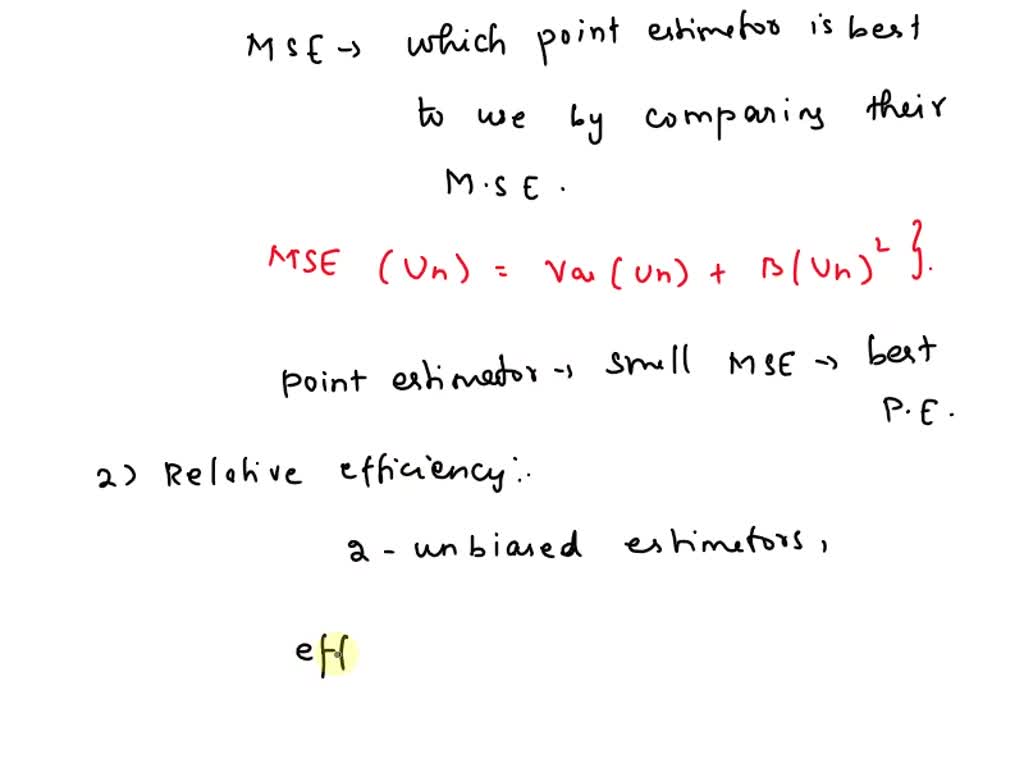 MSE → which point estimator is best
to use by comparing their
M.SE.
MSE (Un) = Var (Un) + B(Un)² }.
point estimator → small MSE → best
P.E.
2) Relative efficiency:.
2 - unbiased estimators,
eff